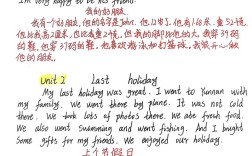 I'm very happy to be his friend.
我的好朋友
我有一个好朋友,他的名字是John。他12岁,他高1.6米,重52千
他比我高2厘米,也比我重2千克,但我的脚比他的大。我穿37码
的鞋,他穿35码的鞋。他喜欢游泳和打篮球。我很开心做
他的朋友。
Unit 2 Last holiday
My last holiday was great. I went to Yunnan with
my family. We went there by plane. It was not cold
there. We took lots of photos there. We ate fresh food.
We also went swimming and went fishing. And I bought
Some gifts for my friends. We enjoyed our holiday.
上个节假日